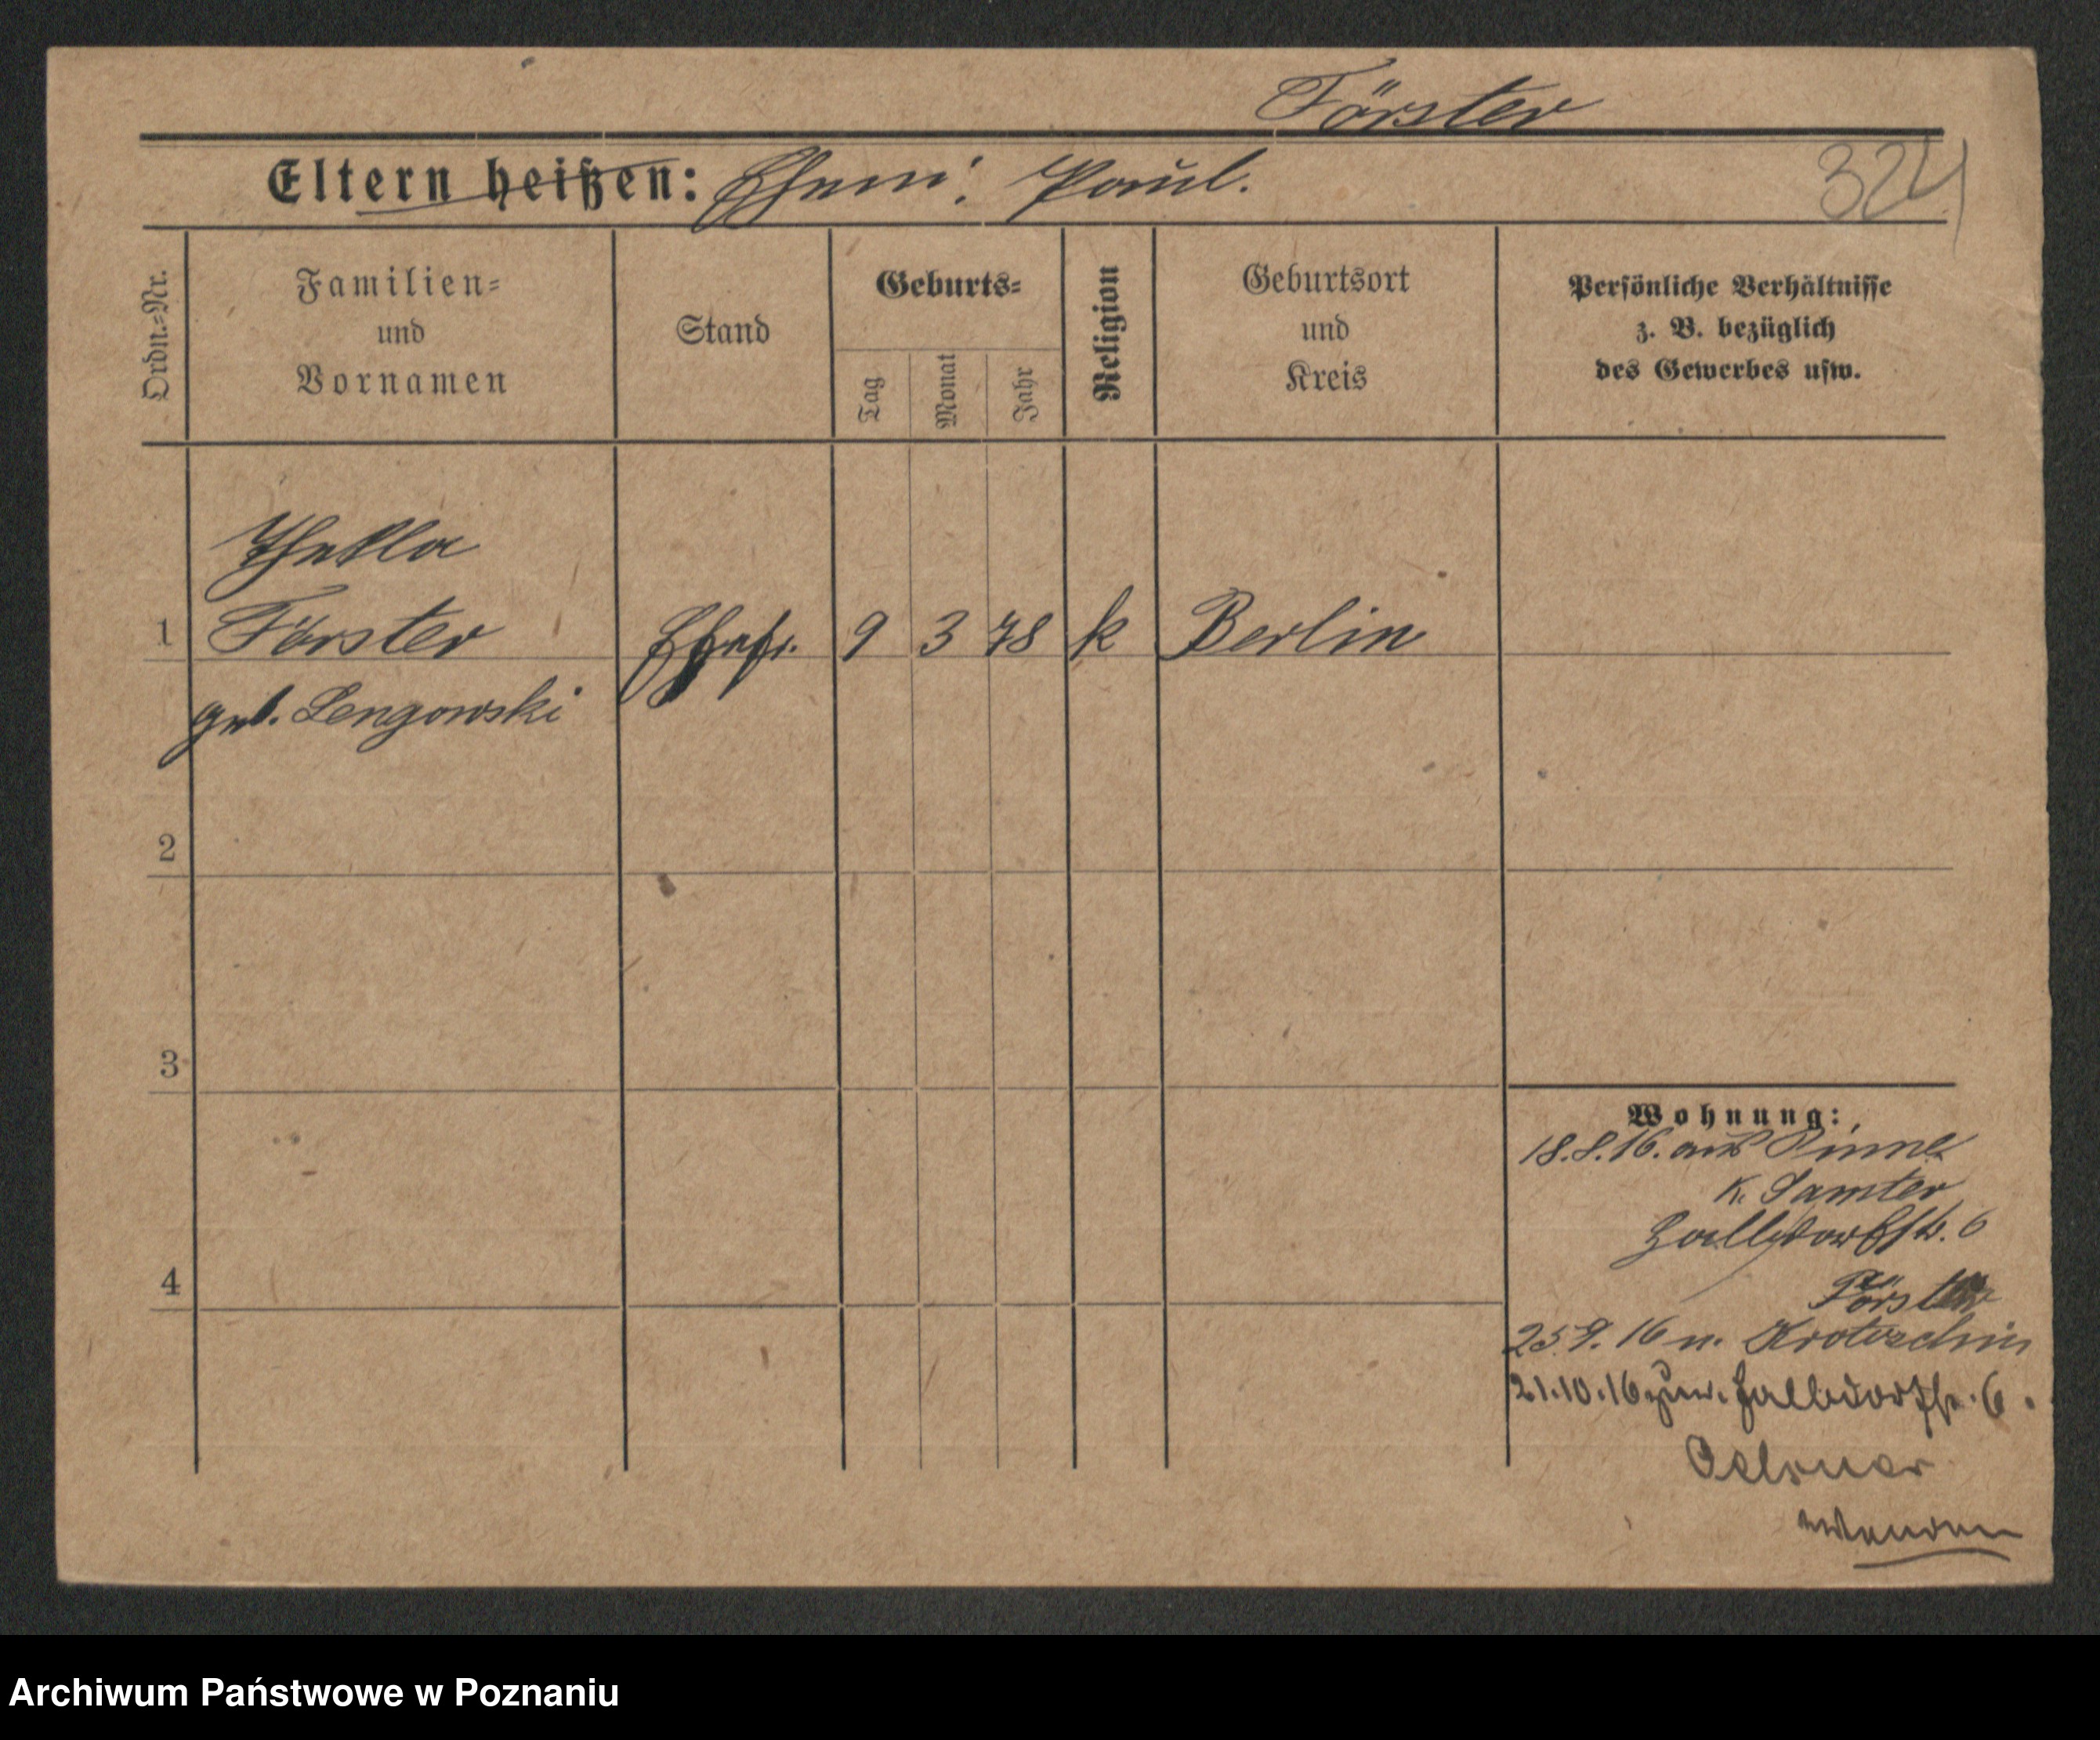 Förster
Eltern heißen: Ehem: Paul.
324
Ordn.=Nr.
Familien=
und
Vornamen
Stand
Geburts=
Tag
Monat
Jahr
Religion
Geburtsort
und
Kreis
Persönliche Verhältnisse
z. B. bezüglich
des Gewerbes usw.
Thekla
1 Förster Ehefr. 9 3 78 k Berlin
geb. Lengowski
2
3
4
Wohnung:
18.8.16. aus Pinne
K. Samter
6
Förster
25.9.16 n. Krotoschin
21.10.16 zur. 6.
Oelsner
wenden
Archiwum Państwowe w Poznaniu